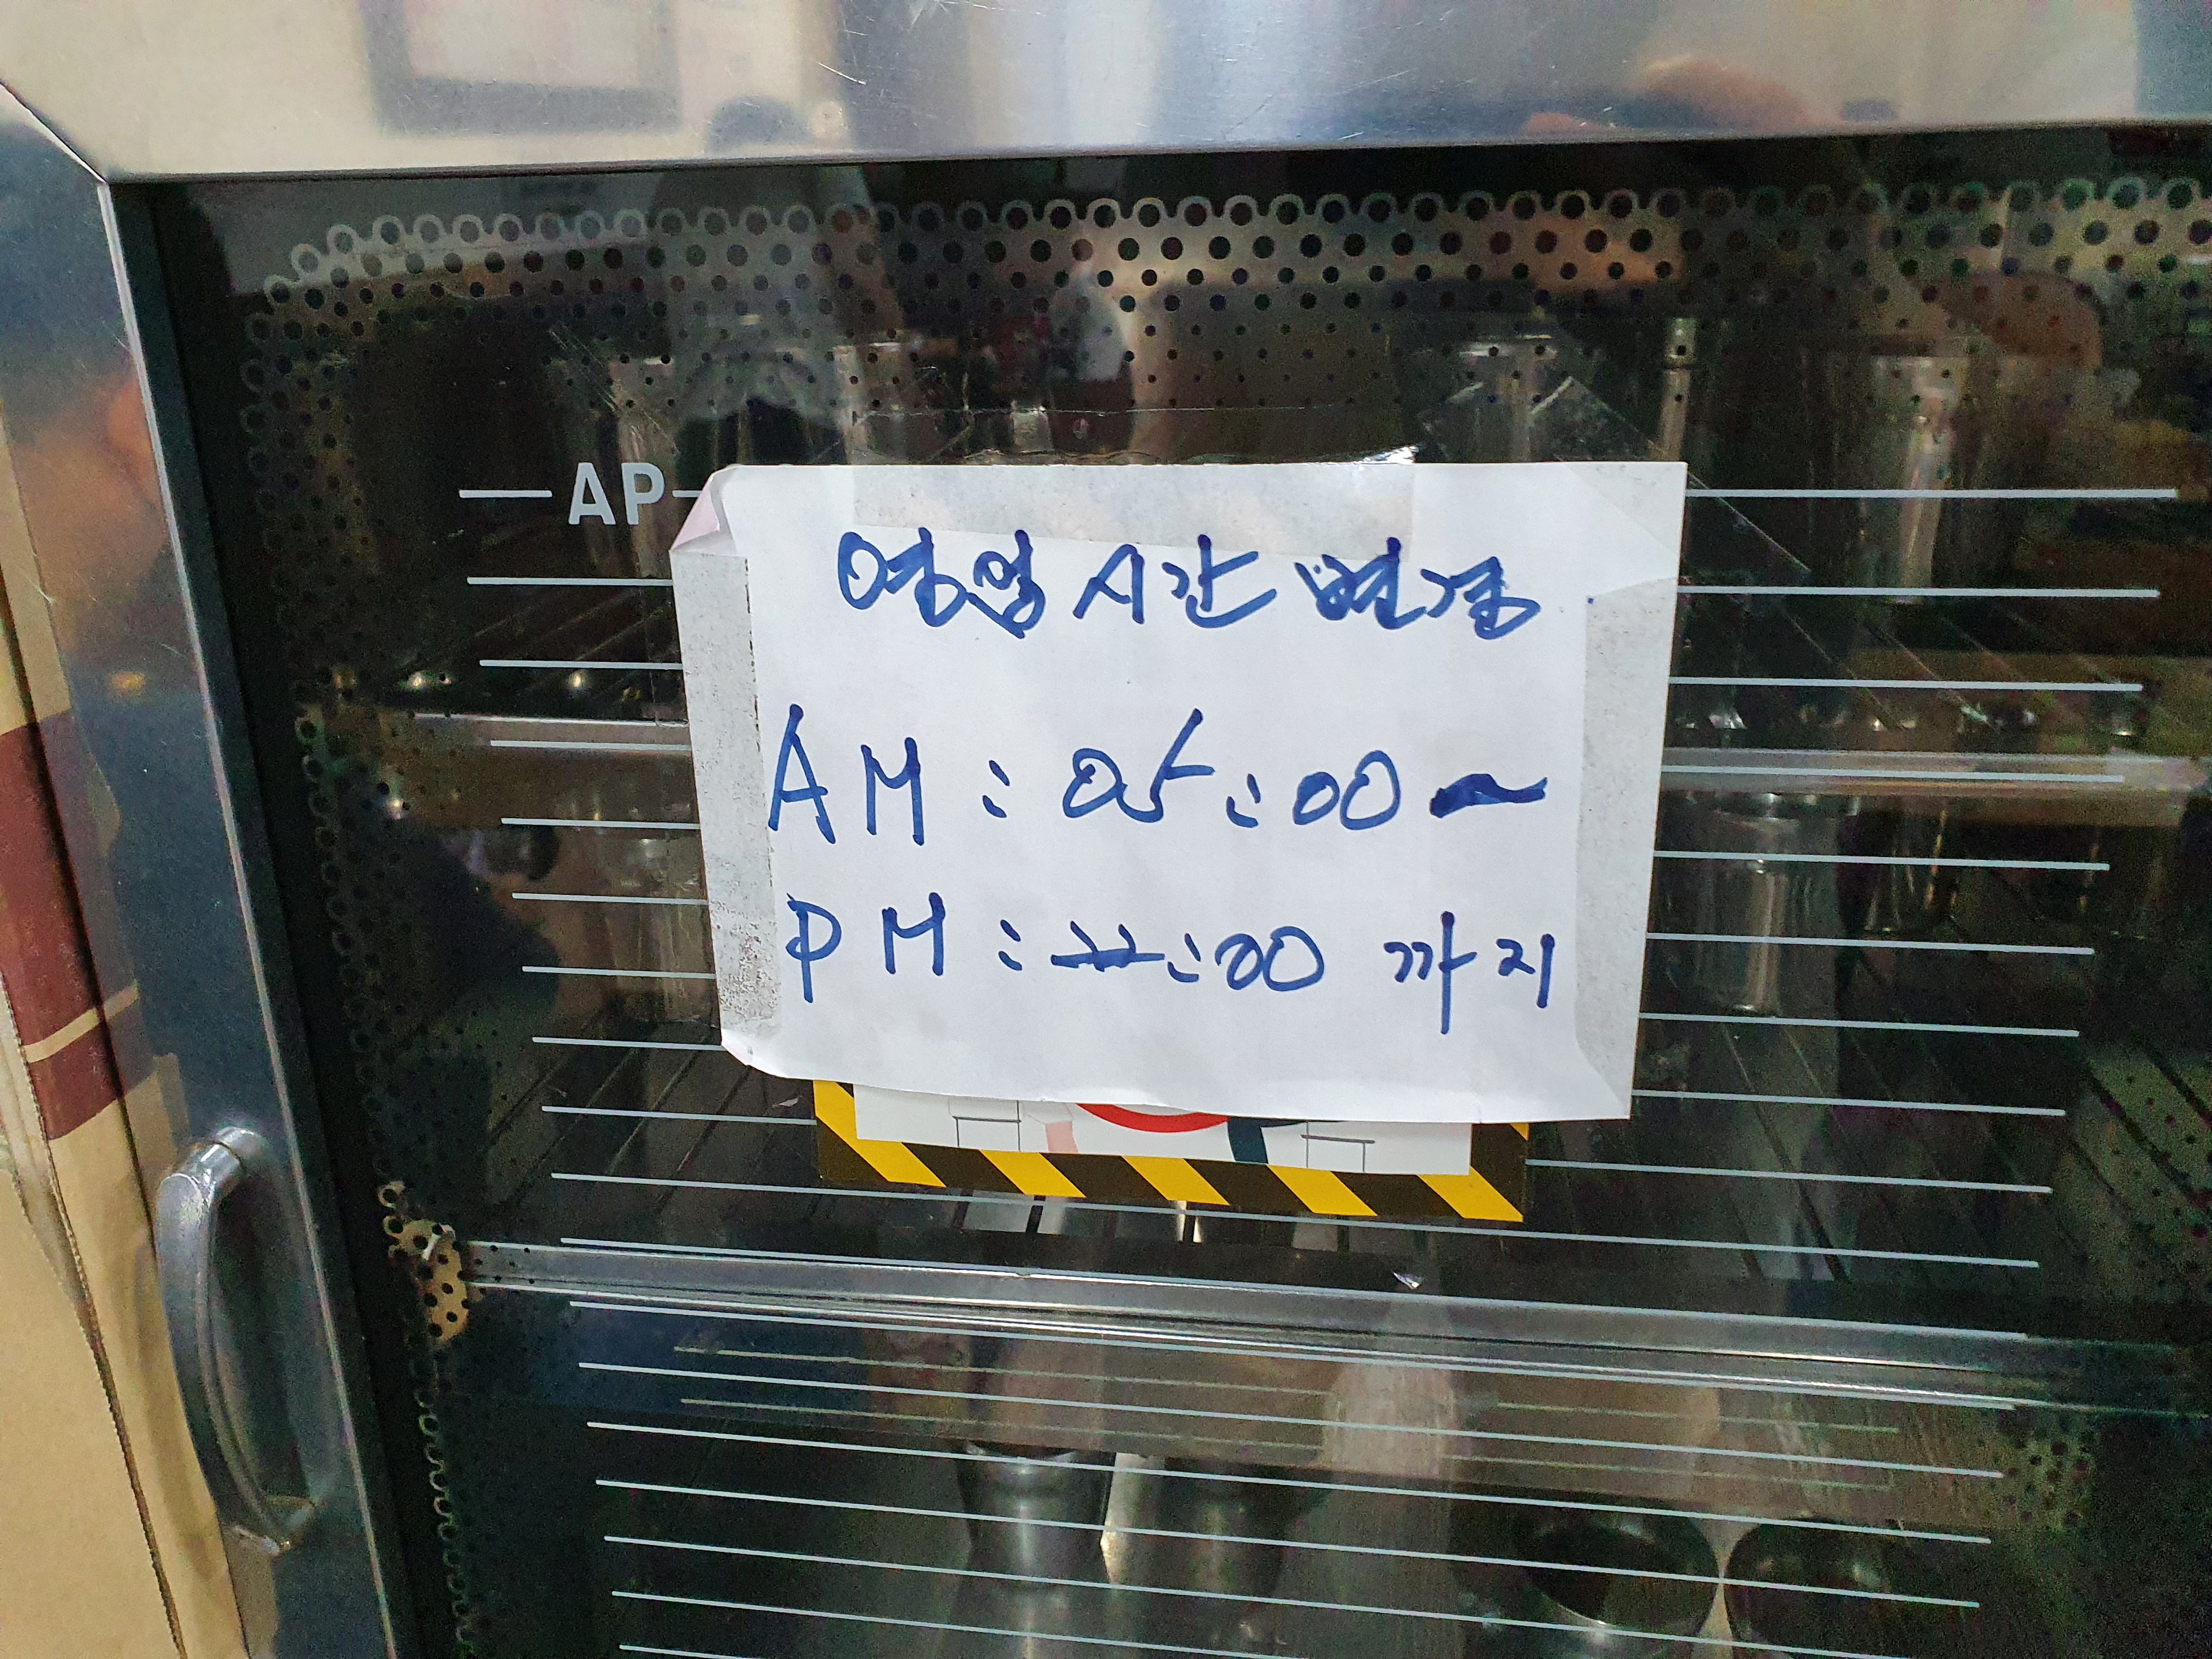 AP
영업시간 변경
AM : 05:00~
PM : 22:00 까지